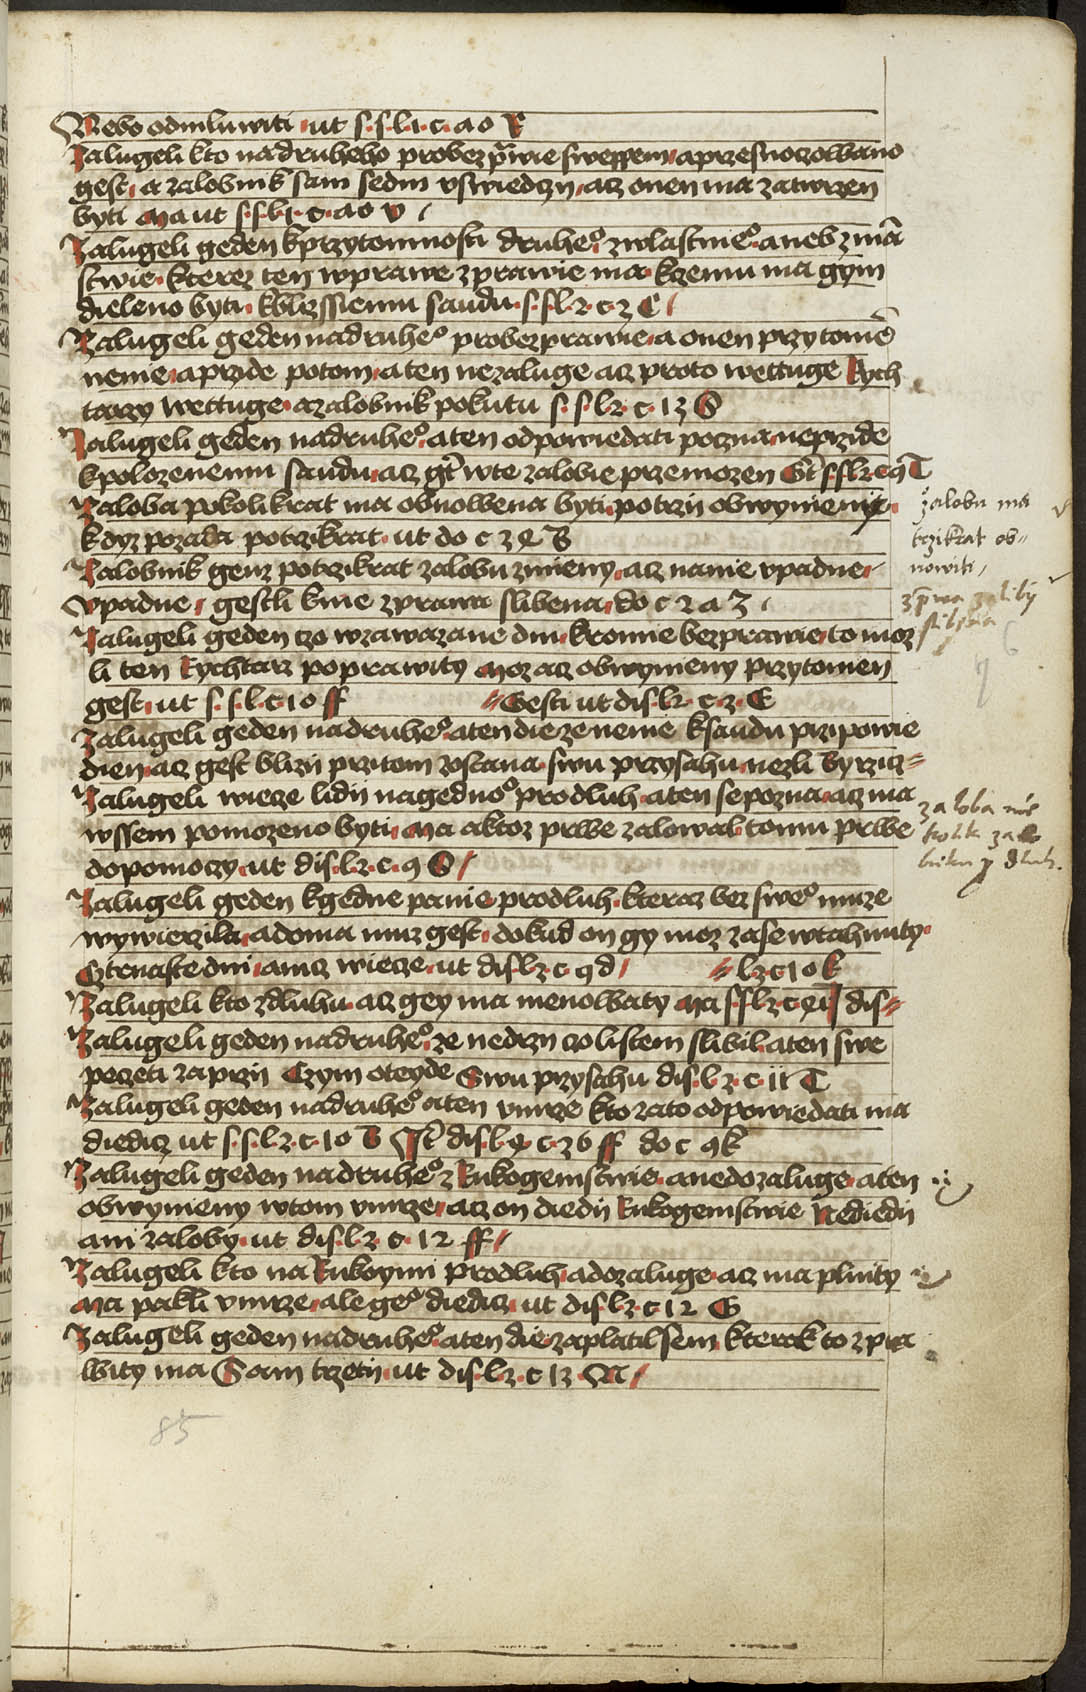 Nebo odmluwiti ut s. s. l. 1. c. 40 R
Zalugeli kto nadruheho probez p̄wie swessem a przesnoczowano
gest a zalobnik sam sedm vswiedczy acz onen ma zatwrzen
byti Ma ut s. s. l. 1. c. 40 v
Zalugeli geden kprzytomnosti druheº zwlastnieº aneb z mā
stwie kterez ten wprawe zprawie ma kczemu ma gym
dieleno byti kblizssiemu saudu s. s. l. 2. c. 3 C
Zalugeli geden nadruheº probezprawie a onen przytomē
nenie a przide potom a ten nezaluge acz proto wettuge Rych
tarzy wettuge a zalobnik pokutu s. s. l. 2. c. 13 S
Zalugeli geden nadruheº a ten odpowiedati poczna neprzide
kpolozenemu saudu acz gt̄ wte zalobie przemozen Gt̄ s. s. l. 2. c. 9 T
Zaloba pokolikrat ma obnowena byti potrzy obwynienie
kdyz pozada potrzikrat ut do c 3 e B
Zalobnik genz potrzikrat zalobu zmieny acz nanie vpadne
vpadne gestli knie zprawa slibena do c 2 a 3
Zalugeli geden czo wzawazane dni kromie bezprawie to moz
li ten Rychtarz poprawity Moz acz obwyneny przytomen
gest ut s. s. l. c. 10 ff Gesti ut dis. l. 2. c. 3. E
Zalugeli geden nadruheº a ten die ze nenie ksaudu przipowie
dien acz gest blizy przitom zostana swu przysahu nezli byrzicz
Zalugeli wiecze lidij nagednoº prodluh a ten sepozna acz ma
wssem pomozeno byti Ma a ktoz prwe zalowal tomu prwe
dopomoczy ut dis. l. 2. c. 9 S
Zalugeli geden kgedne panie prodluh kteraz bez sweº muze
wywierzila a doma muz gest dokud on gy moz zase wtahnuty
Cztrnaste dni a nicz wiecze ut dis. l. 2. c. 9 d l. 2. c. 10 k
Zalugeli kto zdluhu acz gey ma menowaty Ma s. s. l. 2. c. dis
Zalugeli geden nadruheº ze nedrzy czo listem slibil a ten swe
peczeti zaprzij Czym oteyde Swu przysahu dis. l. 2. c. 11 T
Zalugeli geden nadruheº a ten vmrze kto zato odpowiedati ma
diedicz ut s. s. l. 2. c. 10 B dis. l. c. 36 ff do c 9 k
Zalugeli geden nadruheº z Rukogemstwie a nedozaluge a ten
obwyneny wtom vmrze acz on diedij Rukogemstwie Nediedij
ani zaloby ut dis. l. 2. c. 12 ff
Zalugeli kto na Rukoymi prodluh a dozaluge acz ma plnity
Ma pakli vmrze ale geº diedicz ut dis. l. 2. c. 12 G
Zalugeli geden nadruheº a ten die zaplatil sem kterak to zpra
wity ma Sam trzetij ut dis. l. 2. c. 13 M
žaloba ma
trzikrat ob-
nowiti
zaloba
85